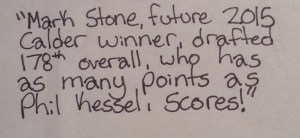 "Mark Stone, future 2015
Calder winner, drafted
178th overall, who has
as many points as
Phil Kessel, Scores!"